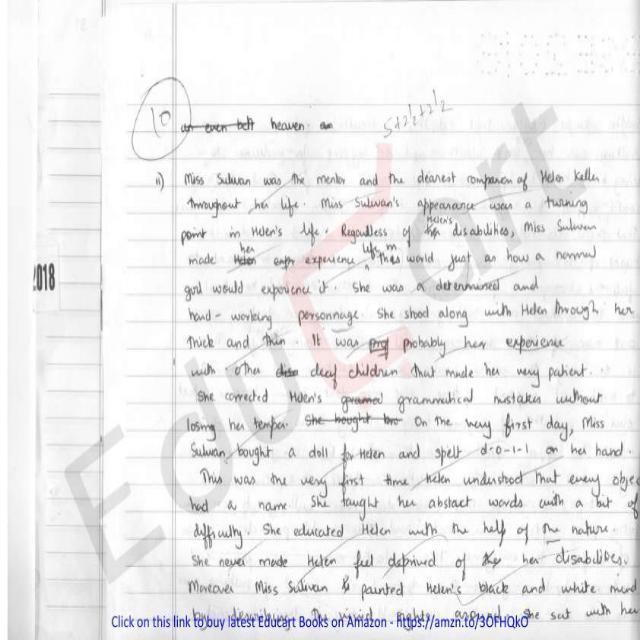 10
an even bett heaven. an
5+2½+2½
11) Miss Sulivan was the mentor and the dearest companion of Helen Keller
throughout her life. Miss Sulivan's appearance was a turning
point in Helen's life. Regardless of Helen's disabilities, Miss Sulivan
made her experience life in this world just as how a normal
girl would experience it. She was a determined and
hard-working personnage. She stood along with Helen through her
thick and thin. It was probably her experience
with other deaf children that made her very patient.
She corrected Helen's grammatical mistakes without
losing her temper. She bought On the very first day, Miss
Sulivan bought a doll for Helen and spelt d-o-l-l on her hand.
This was the very first time Helen understood that every objec
had a name. She taught her abstact words with a bit of
difficulty. She educated Helen with the help of the nature.
She never made Helen feel deprived of her disabilities.
Moreover Miss Sulivan painted Helen's black and white mind
by describing the vivid sights around. She sat with her
2018
EduCart
Click on this link to buy latest Educart Books on Amazon - https://amzn.to/3OFHQkO